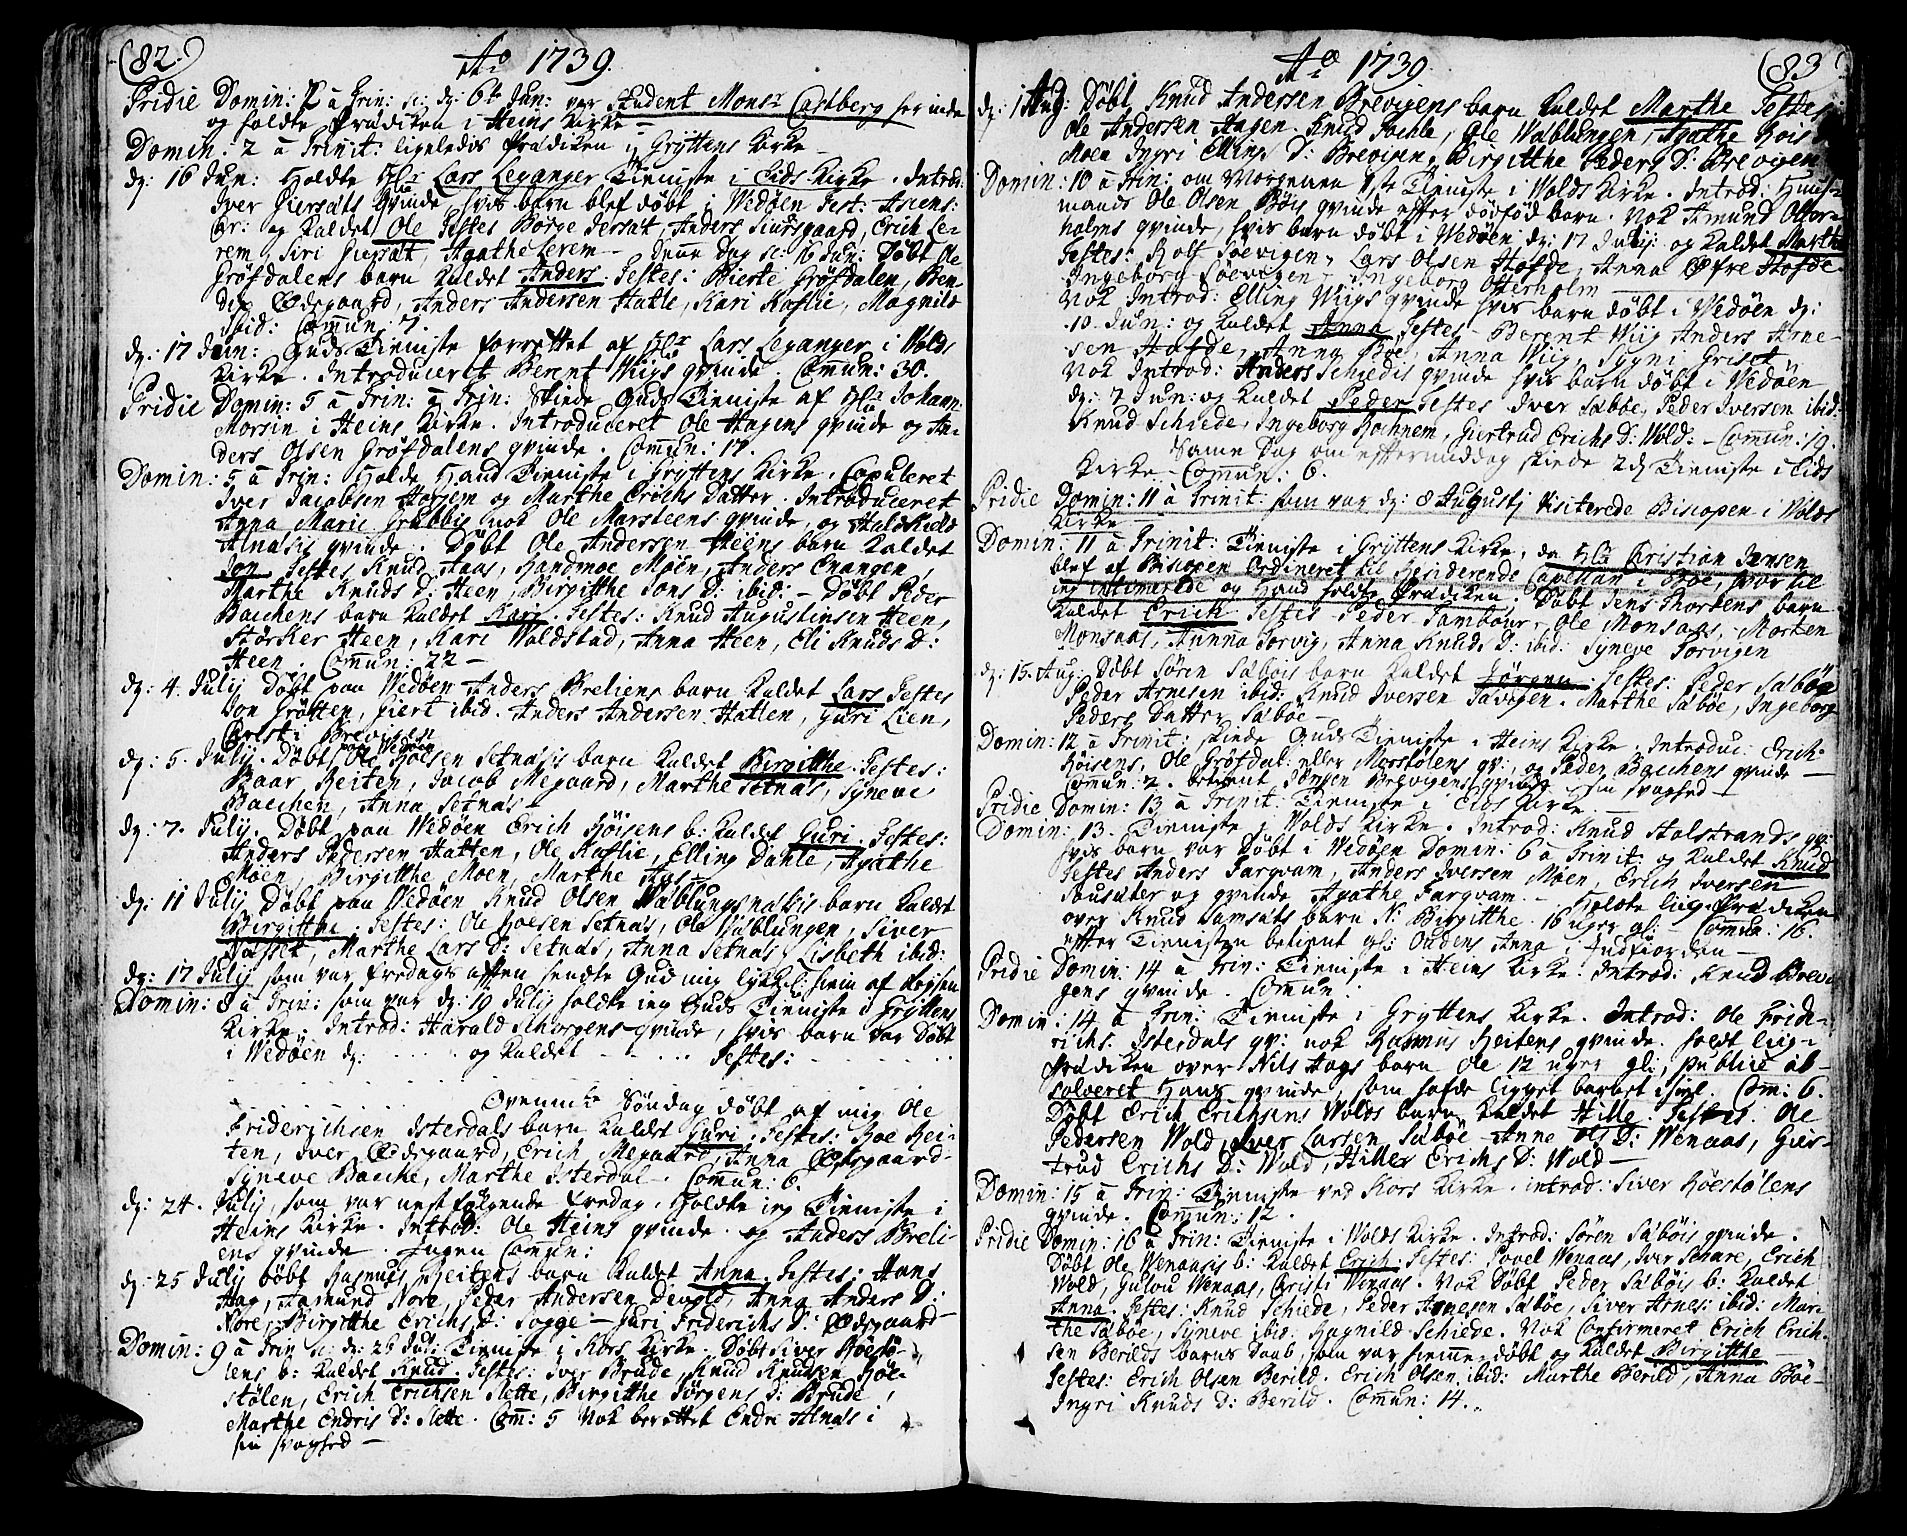 (82.)
Aº 1739.
Pridie Domin: 2 à Trin: sc: dg: 6te Jun: var Student Monsr Castberg her inde
og holdte Prædiken i Heins Kirke
Domin: 2 à Trinit: ligeledis Prædiken i Gryttens Kirke
dg: 16 Jun: Holdte Hr Lars Leganger Tieniste i Eids Kirke. Introd:
Iver giersæts qvinde, hvis barn blef døbt i Wedøen
og kaldet Ole Testes Børge Jersæt, Anders Siursgaard, Erich Le-
rem, Siri giersæt, Agathe Lerem - Denne Dag sc: 16 Jun: Døbt Ole
Grøfdalens barn kaldet Anders. Testes: Bierte Grøfdalen, Ben
dix Ødegaard, Anders Andersen Hatle, Kari Kaflie, Magnild
ibid: Comun: 7.
dg: 17 Jun: Guds Tieniste forrettet af Hr Lars Leganger i Wolds
Kirke. Introduceret Berent Wiigs qvinde. Comun: 30.
Pridie Domin: 5 à Trin: Skiede Guds Tieniste af Hr Johan
Morsin i Heins Kirke. Introduceret Ole Hagens qvinde og An-
ders Olsen Grøfdalens qvinde. Comun: 17.
Domin: 5 à Trin: Holdt Hand Tieniste i Gryttens Kirke. Copuleret
Iver Jacobsen Horjem og Marthe Erichs Datter. Introduceret
Anna Marie Grubbis nok Ole Marsteens qvinde, og Halkield
Alnæsis qvinde. Døbt Ole Andersen Heens barn kaldet
Jon Testes Knud Aas, Moen, Anders Enangen,
Marthe Knuds D: Heen, Birgitthe Jons D: ibid: - Døbt Peder
Bacchens barn kaldet Kari. Testes: Knud Augustinsen Heen,
Stærker Heen, Kari Woldstad, Anna Heen, Eli Knuds D:
Heen. Comun: 22 -
dg: 4. Julij Døbt paa Wedøen Anders Breliens barn kaldet Lars Testes
Jon Grøtten, giert ibid. Anders Andersen Hatlen, Guri Lien,
dg: 5. Julij. Døbt paa Wedøen Ole Setnæsis barn kaldet Birgitthe. Testes:
Baar Reiten, Jacob Megaard, Marthe Setnæs, Syneve
Bacchen, Anna Setnæs -
dg: 7. Julij. Døbt paa Wedøen Erich Høisens b: kaldet Guri. Testes:
Anders Pedersen Hatlen, Ole Kaflie, Elling Dahle, Agathe
Moen, Birgitthe Moen, Marthe
dg: 11 Julij Døbt paa Wedøen Knud Olsen Wæblungsnæsis barn kaldet
Birgitthe. Testes: Ole Setnæs, Ole Wæblungen, Siver
Marthe Lars D: Setnæs, Anna Setnæs, Lisbeth ibid:
dg: 17 Julij som var fredags aften sendte Gud mig lykkel: hiem af Reysen
Domin: 8 à Trin: som var dg: 19 Julij holdte ieg Guds Tieniste i Gryttens
Kirke. Introd: Harald qvinde, hvis barn var Døbt
i Wedøen dg: ..... og kaldet ..... Testes:
Søndag døbt af mig Ole
Friderichsen Isterdals barn kaldet Guri. Testes: Roe Rei-
ten, Iver Ødegaard, Erich Megaard, Anna Ødegaard
Syneve Bacche, Marthe Isterdal. Comun: 6.
dg: 24. Julij, som var nestfølgende fredag, holdte ieg Tieniste i
Heins Kirke. Introd: Ole Heins qvinde. og Anders Breli-
ens qvinde. Ingen Comun:
dg: 25 Julij døbt Rasmus Reitens barn kaldet Anna. Testes: Hans
Hag, Aamund Nore, Peder Andersen Devold, Anna Anders D:
Nore, Birgitthe Erichs D: Sogge - Guri Friderichs D: Ødegaard
Domin: 9 à Trin sc: dg: 26 Jul: Tieniste i Kors Kirke. Døbt Siver Høestø-
lens b: kaldet Knud. Testes: Iver Brude, Knud Knudsen Høe-
stølen, Erich Erichsen Slette, Birgitthe Jørgens D: Brude,
Marthe Endris D: Slette. Com: 5 Nok berettet Endre Alnæs i
sin svaghed -
Aº 1739
(83)
dg: 1 Aug: Døbt Knud Andersen Brevigens barn kaldet Marthe Testes
Ole Andersen Hagen. Knud Ole Wæblungen, Agathe
Moen Ingri Ellings D: Brevigen, Birgitthe Peders D: Brevigen
Domin: 10 à Trin: om Morgenen Tieniste i Wolds Kirke. Introd: Huus-
mands Ole Olsen Bøis qvinde efter dødfød barn. Nok Amund Otter-
holms qvinde, hvis barn døbt i Wedøen dg: 17 Julij: og kaldet Marthe
Testes: Rolf Søevigen, Lars Olsen Hofde, Anna Øfre Hofde.
Ingeborg Søevigen, Ingeborg Otterholm
Nok Introd: Elling Wiigs qvinde hvis barn døbt i Wedøen dg:
10. Jun: og kaldet Anna. Testes - Berent Wiig Anders Arne-
sen Hofde, Anna Bøe, Anna Wiig, Sygni Griset
Nok Introd: Anders Schiedis qvinde hvis barn døbt i Wedøen
dg: 7 Jun: og kaldet Peder Testes Iver Sæbøe, Peder Iversen ibid:
Knud Schiede, Ingeborg giertrud Erichs D: Wold: - Comun: 19.
Samme Dag om eftermiddag skiede 2d Tieniste i Eids
Kirke - Comun: 6.
Pridie Domin: 11 à Trinit: som var dg: 8 Augustj Visiterede Bispen i Wolds
Kirke -
Domin: 11 à Trinit: Tieniste i Gryttens Kirke, da Hr Christian Jensen
blef af Bispen Ordineret til Residerende Capellan i Bøe, hvortil
ieg intimerede og Hand holdte Prædiken. Døbt Jens Thordens barn
kaldet Erich Testes Peder Tambour, Ole Monsaas, Morten
Monsaas, Anna Torvig, Anna Knuds D: ibid: Syneve Torvigen
dg: 15. Aug: Døbt Søren Sæbøis barn kaldet Jørgen. Testes: Peder Sæbøe
Peder Arnesen ibid: Knud Iversen Marthe Sæbøe, Ingeborg
Peders Datter Sæbøe -
Domin: 12 à Trinit: skiede Guds Tieniste i Heins Kirke. Introduc: Erich
Høisens, Ole Grøfdal: eller Morstølens qv:, og Peder Bacchens qvinde -
Comun: 7. betient Jørgen Brevigens qvinde i sin svaghed -
Pridie Domin: 13 à Trinit: Tieniste i Eids Kirke
Domin: 13. Tieniste i Wolds Kirke. Introd: Knud Stolstrands qv:
hvis barn var Døbt i Wedøen Domin: 6 à Trinit: og kaldet Knud
Testes Anders Fargvam, Anders Iversen Moen, Erich Iversen
og qvinde Agathe Fargvam. - Holdte liig Prædiken
over Knud barn N: Birgitthe. 16 uger gl: - Comun: 16.
efter Tienisten betient gl: Oudens Anna i Indfiorden -
Pridie Domin: 14 à Trin: Tieniste i Heins Kirke: Introd: Knud Brevi-
gens qvinde. Comun:
Domin: 14 à Trin: Tieniste i Gryttens Kirke. Introd: Ole Frid-
richs. Isterdals qv: nok Rasmus Reitens qvinde. holdt liig-
Prædiken over Nils Hags barn Ole 12 uger gl:, publicè ab-
solveret Hans qvinde, som hafde ligget barnet ihiel. Com: 6.
Døbt Erich Erichsens Wolds barn kaldet Hille. Testes: Ole
Pedersen Wold, Iver Larsen Sæbøe - Anne Ols D: Wenaas, Gier-
trud Erichs D: Wold, Hilles Erichs D: Wold -
Domin: 15 à Trin: Tieniste ved Kors Kirke. introd: Siver Høestølens
qvinde. Comun: 12.
Pridie Domin: 16 à Trin: Tieniste i Wolds Kirke. Introd: Søren Sæbøis qvinde.
Døbt Ole Wenaasis b: kaldet Erich. Testes: Povel Wenaas, Iver Schare, Erich
Wold, Gulou Wenaas, Christi Wenaas. Nok Døbt Peder Sæbøis b: kaldet
Anna. Testes: Knud Schiede, Peder Arnesen Sæbøe, Siver Arnes: ibid: Mar-
the Sæbøe, Syneve ibid: Ragnild Schiede. Nok Confirmeret Erich Erich-
sen Berilds barns Daab, som var hiemmedøbt og kaldet Birgitthe -
Testes: Erich Olsen Berild. Erich Olsen ibid: Marthe Berild, Anna Bøe
Ingri Knuds D: Berild. Comun: 14.